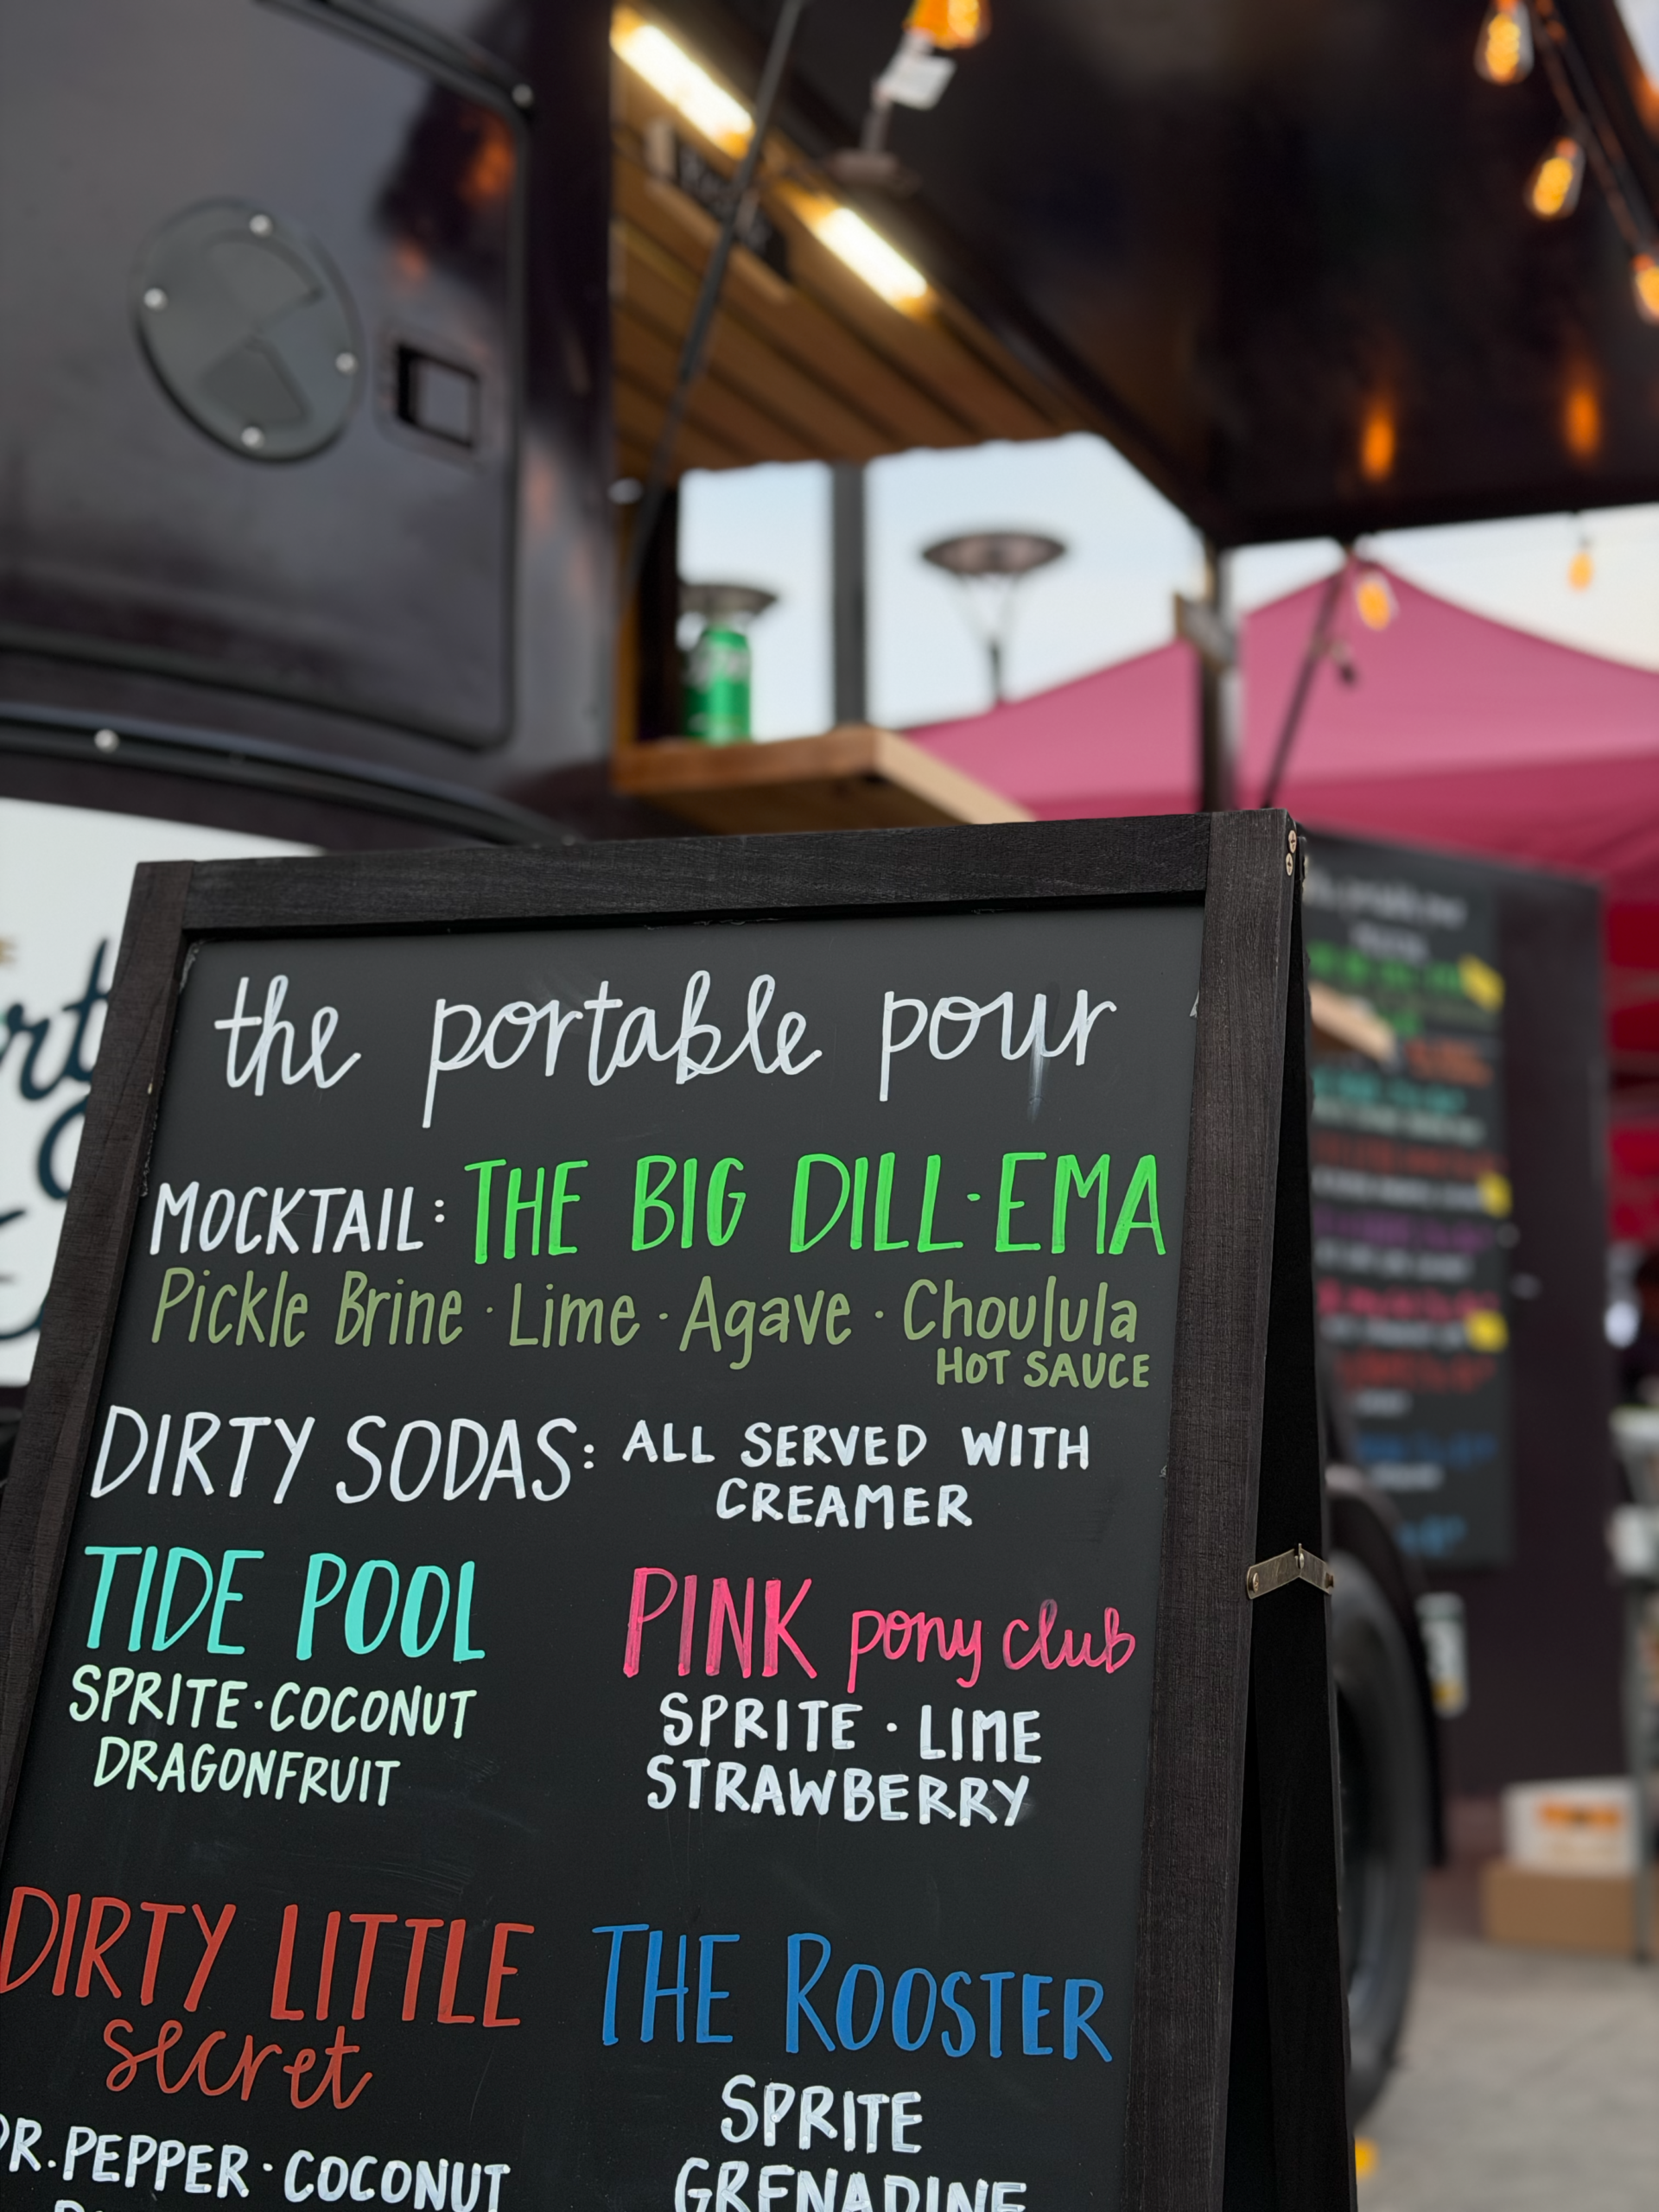 the portable pour
MOCKTAIL: THE BIG DILL·EMA
Pickle Brine · Lime · Agave · Choulula
HOT SAUCE
DIRTY SODAS: ALL SERVED WITH
CREAMER
TIDE POOL
SPRITE·COCONUT
DRAGONFRUIT
PINK pony club
SPRITE · LIME
STRAWBERRY
DIRTY LITTLE
secret
DR.PEPPER·COCONUT
THE ROOSTER
SPRITE
GRENADINE